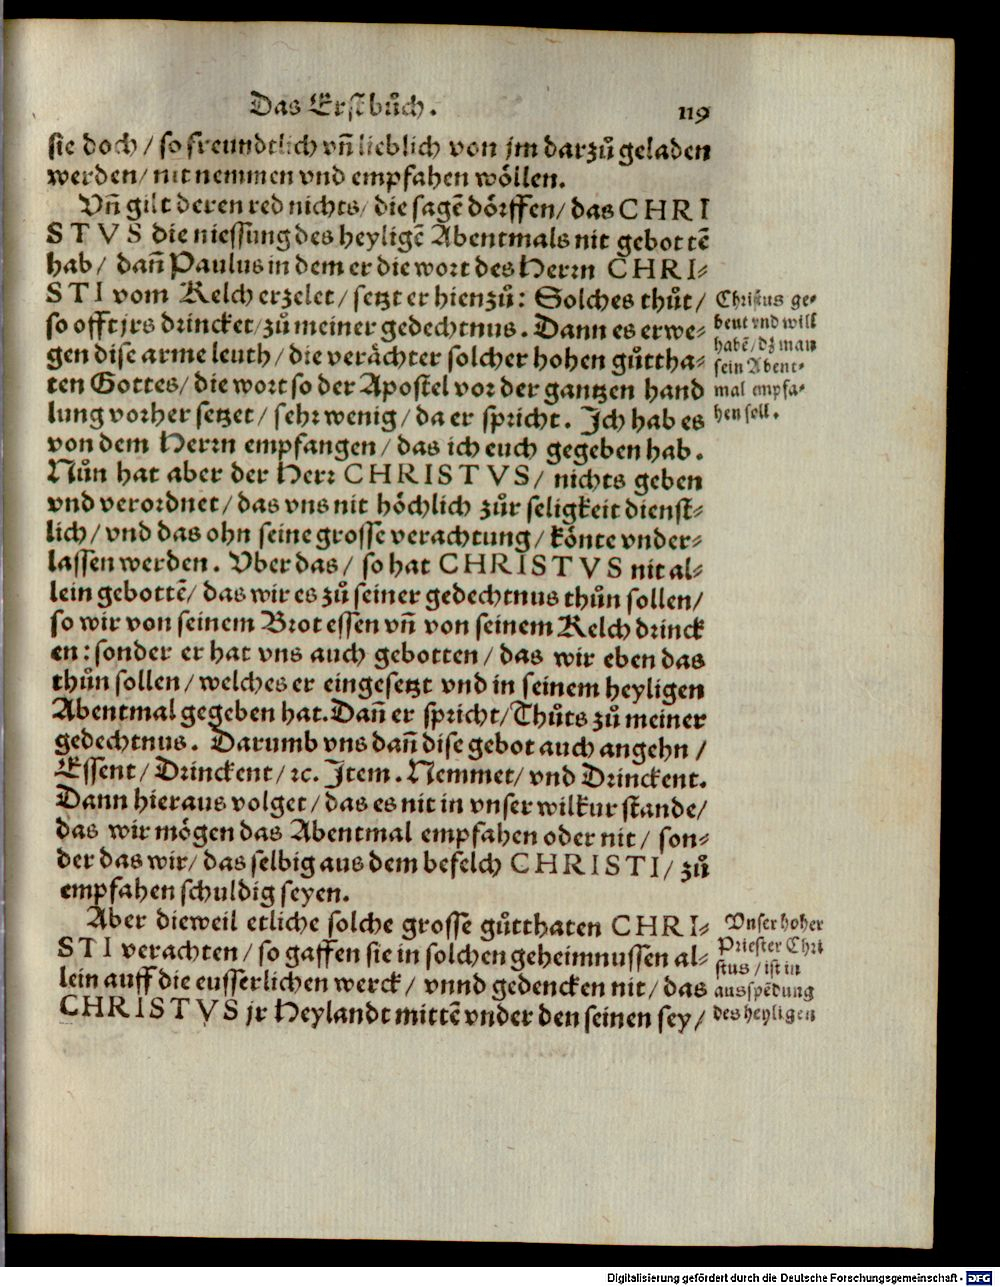 Das Erst bůch. 119
sie doch / so freundtlich vñ lieblich von jm darzů geladen
werden / nit nemmen vnd empfahen wöllen.
Vñ gilt deren red nichts / die sagē dörffen / das CHRI
STVS die niessung des heyligē Abentmals nit gebottē
hab / dañ Paulus in dem er die wort des Herrn CHRI-
STI vom Kelch erzelet / setzt er hienzů: Solches thůt /
so offt jrs drincket / zů meiner gedechtnus. Dann es erwe-
gen dise arme leuth / die verächter solcher hohen gůttha-
ten Gottes / die wort so der Apostel vor der gantzen hand
lung vorher setzet / sehr wenig / da er spricht. Ich hab es
von dem Herrn empfangen / das ich euch gegeben hab.
Nůn hat aber der Herr CHRISTVS / nichts geben
vnd verordnet / das vns nit höchlich zůr seligkeit dienst-
lich / vnd das ohn seine grosse verachtung / könte vnder-
lassen werden. Vber das / so hat CHRISTVS nit al-
lein gebottē / das wir es zů seiner gedechtnus thůn sollen /
so wir von seinem Brot essen vñ von seinem Kelch drinck
en: sonder er hat vns auch gebotten / das wir eben das
thůn sollen / welches er eingesetzt vnd in seinem heyligen
Abentmal gegeben hat. Dañ er spricht / Thůts zů meiner
gedechtnus. Darumb vns dañ dise gebot auch angehn /
Essent / Drinckent / ꝛc. Item. Nemmet / vnd Drinckent.
Dann hieraus volget / das es nit in vnser wilkur stande /
das wir mögen das Abentmal empfahen oder nit / son-
der das wir / das selbig aus dem befelch CHRISTI / zů
empfahen schuldig seyen.
Aber dieweil etliche solche grosse gůtthaten CHRI-
STI verachten / so gaffen sie in solchen geheimnussen al-
lein auff die eusserlichen werck / vnnd gedencken nit / das
CHRISTVS jr Heylandt mittē vnder den seinen sey /
Christus ge-
beut vnd will
habē / dz man
sein Abent-
mal empfa-
hen soll.
Vnser hoher
Priester Chri
stus / ist in
ausspēdung
des heyligen
Digitalisierung gefördert durch die Deutsche Forschungsgemeinschaft - DFG